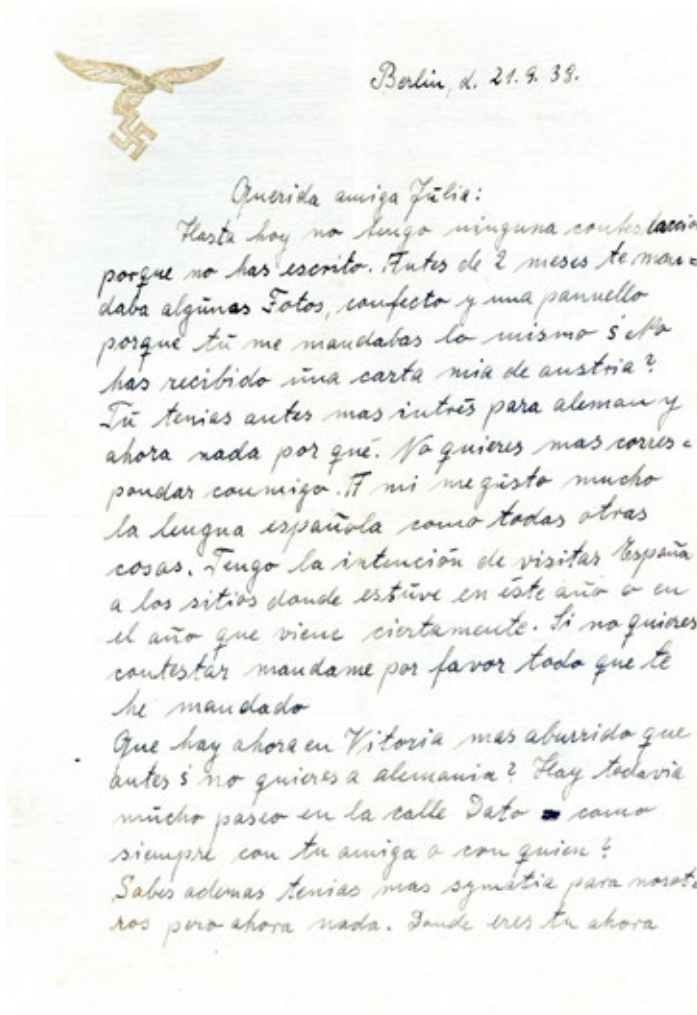 Berlin, d. 21.9.38.
Querida amiga Júlia:
Hasta hoy no tengo ninguna contestacción
porque no has escrito. Antes de 2 meses te man=
daba algúnas Fotos, confecto y una pannello
porque tú me mandabas lo mismo ś No
has recibido úna carta mia de austria?
Tú tenias antes mas intrés para aleman y
ahora nada por qué. No quieres mas corres=
pondar conmigo. A mi me gústo mucho
la lengua española como todas otras
cosas. Tengo la intención de visitar España
a los sitios donde estúve en éste año o en
el año que viene ciertamente. Si no quieres
contestar mandame por favor todo que te
he mandado
Que hay ahora en Vitoria mas aburrido que
antes ś no quieres a alemania? Hay todavia
múcho paseo en la calle Dato como
siempre con tu amiga o con quien?
Sabes ademas tenias mas symatia para nosot
ros pero ahora nada. Donde eres tu ahora